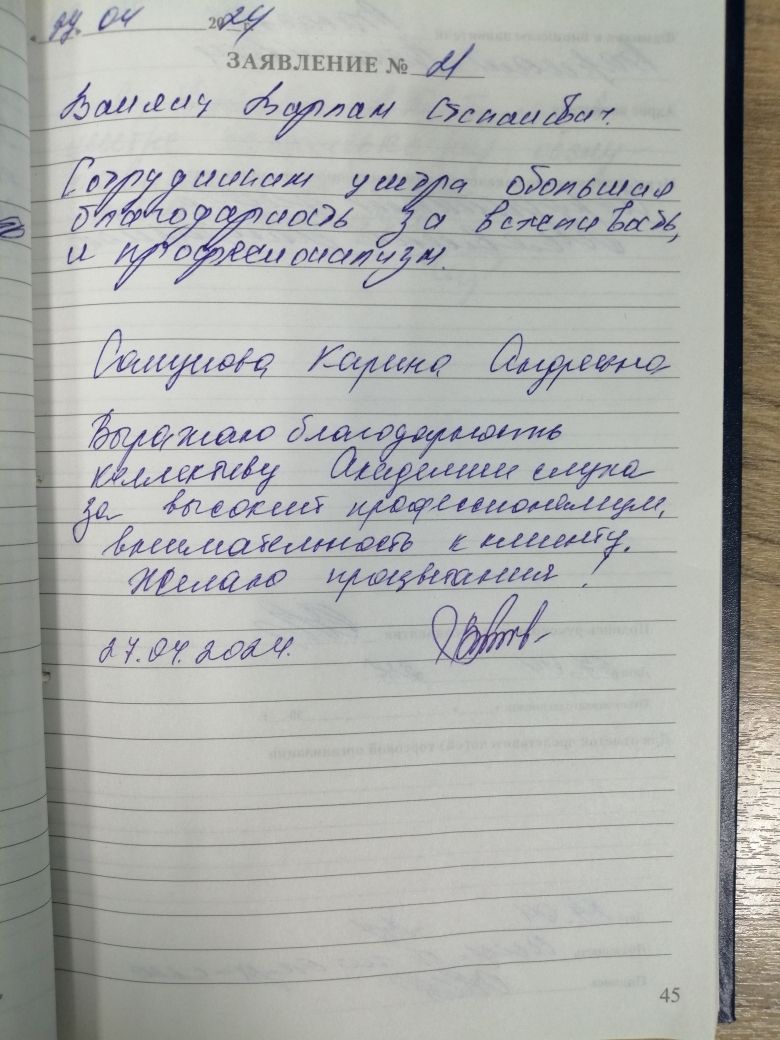 04 2024 г.
ЗАЯВЛЕНИЕ № 21
Варлам Степанович.
Сотрудникам центра обольшая
благодарность за вспеливость,
и професионализм.
Карина Андреевна
Выражаю благодарность
коллективу Академии слуха
за высокий профессионализм,
внимательность к клиенту.
Желаю процветания!
27.04.2024.
45